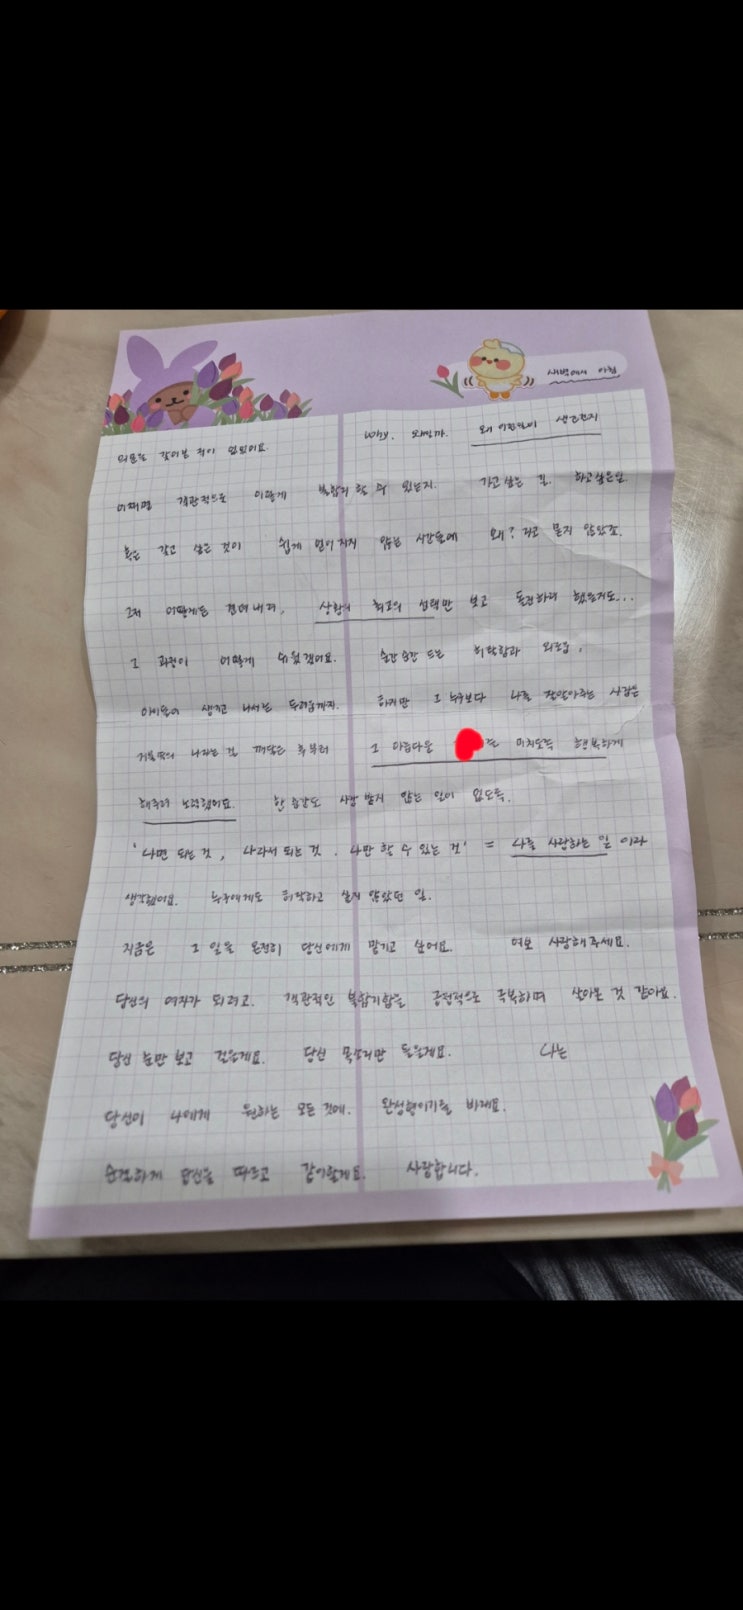 새벽에서 아침
Why. 왜일까. 왜 이런일이 생긴건지
의문을 갖어본 적이 있었어요.
어쩌면 객관적으로 이렇게 불합리 할 수 있는지. 가고싶은 길. 하고싶은일
혹은 갖고 싶은 것이 쉽게 얻어지지 않는 시간들에 왜? 라고 묻지 않았죠.
그저 어떻게든 견뎌내려, 상황서 최고의 선택만 보고 도전하려 했을지도...
그 과정이 어떻게 쉬웠겠어요. 순간순간 드는 허탈함과 외로움,
아이들이 생기고 나서는 두려움까지. 하지만 그 누구보다 나를 잘알아주는 사람은
거울속의 나라는 걸 깨달은 후부터 그 아름다운 미치도록 행복하게
해주려 노력했어요. 한 순간도 사랑 받지 않는 일이 없도록.
'나면 되는 것, 나라서 되는 것. 나만 할 수 있는 것' = 나를 사랑하는 일 이라
생각했어요. 누구에게도 허락하고 싶지 않았던 일.
지금은 그 일을 온전히 당신에게 맡기고 싶어요. 여보 사랑해주세요.
당신의 여자가 되려고. 객관적인 불합리함을 긍정적으로 극복하며 살아온 것 같아요.
당신 눈만 보고 걸을게요. 당신 목소리만 들을게요. 나는
당신이 나에게 원하는 모든 것에. 완성형이기를 바래요.
순결하게 당신을 따르고 같이할게요. 사랑합니다.